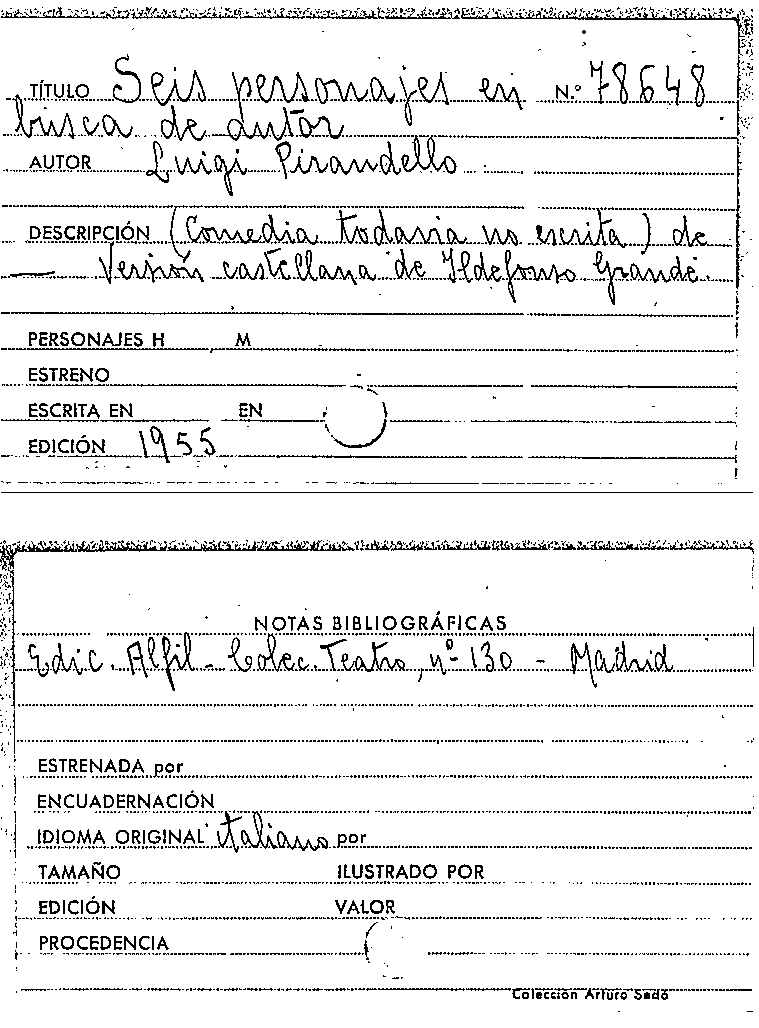 TÍTULO Seis personajes en N.º 78648
busca de autor
AUTOR Luigi Pirandello
DESCRIPCIÓN (Comedia todavia no escrita) de
— Versión castellana de Ildefonso Grande.
PERSONAJES H M
ESTRENO
ESCRITA EN EN
EDICIÓN 1955
NOTAS BIBLIOGRÁFICAS
Edic. Alfil - Colec. Teatro, nº 130 - Madrid
ESTRENADA por
ENCUADERNACIÓN
IDIOMA ORIGINAL italiano por
TAMAÑO ILUSTRADO POR
EDICIÓN VALOR
PROCEDENCIA
Colección Arturo Sedó